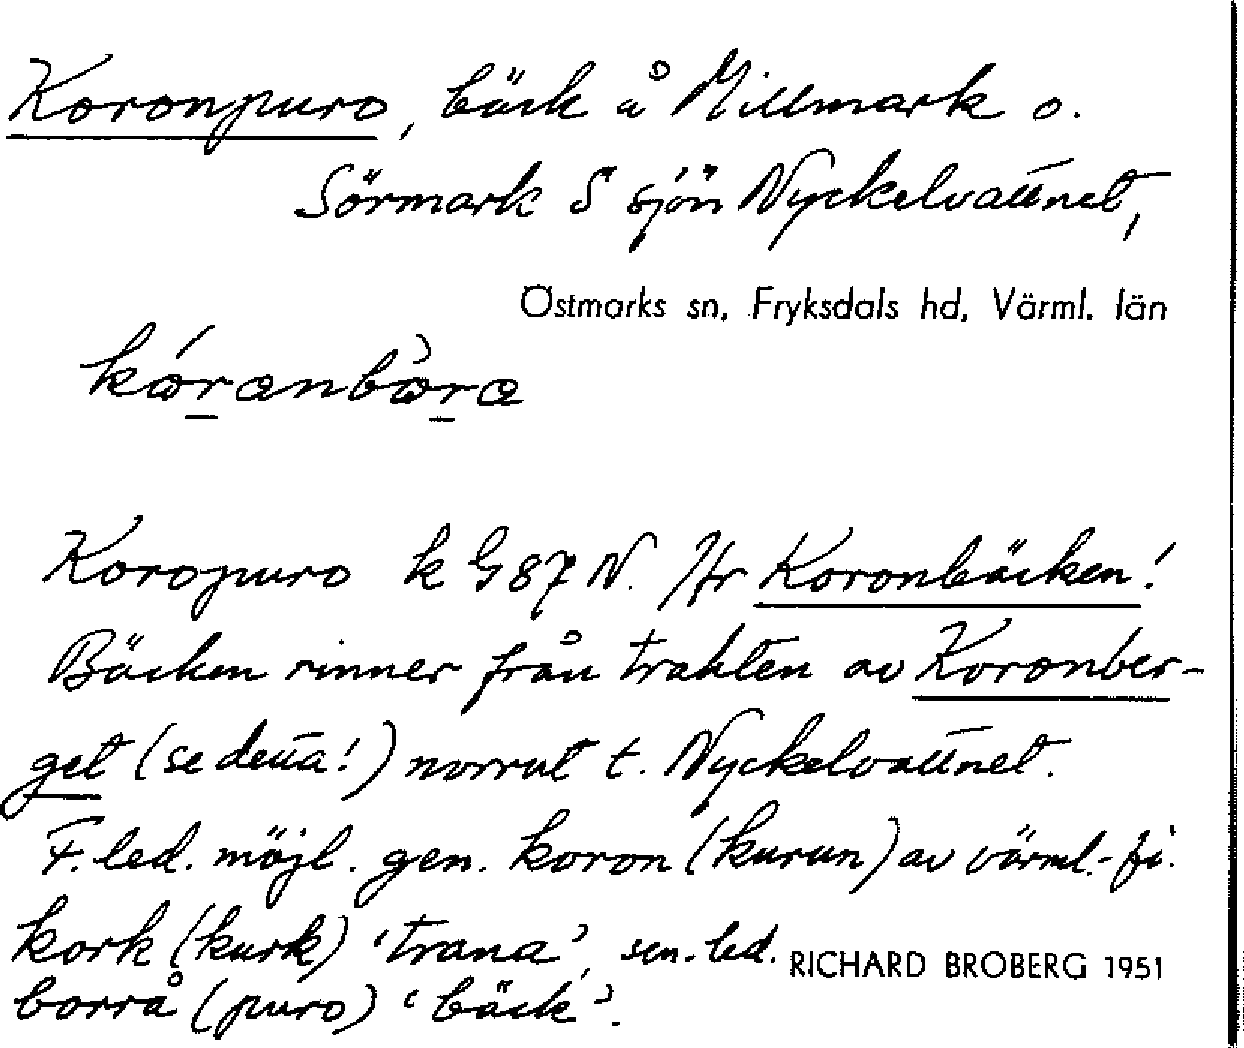 Koronpuro, bäck å Millmark o.
Sörmark S sjön Nyckelvattnet,
Östmarks sn, Fryksdals hd, Värml. län
Koropuro k G 87 N. Jfr Koronbäcken!
Bäcken rinner från trakten av Koronber-
get (se detta!) norrut t. Nyckelvattnet.
F. led. möjl. gen. koron (kurun) av värml.-fi.
kork (kurk) 'trana', sen. led.
RICHARD BROBERG 1951
borrå (puro) 'bäck'.